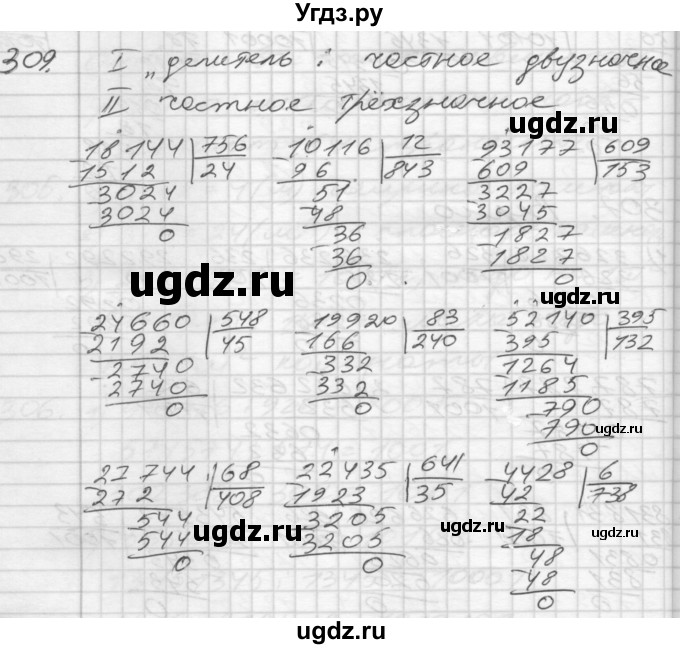 Угдз.ру
309. I „делитель : частное двузначное
II частное трёхзначное
ugdz.ru
18144 756 10116 12 93177 609
1512 24 96 843 609 153
3024 51 3227
3024 48 3045
0 36 1827
36 1827
0 0
ugdz.ru ugdz.ru
24660 548 19920 83 52140 395
2192 45 166 240 395 132
2740 332 1264
2740 332 1185
0 0 790
790
0
ugdz.ru
ugdz.ru
27744 68 22435 641 4428 6
272 408 1923 35 42 738
544 3205 22
544 3205 18
0 0 48
48
0
ugdz.ru ugdz.ru ugdz.ru
ugdz.ru